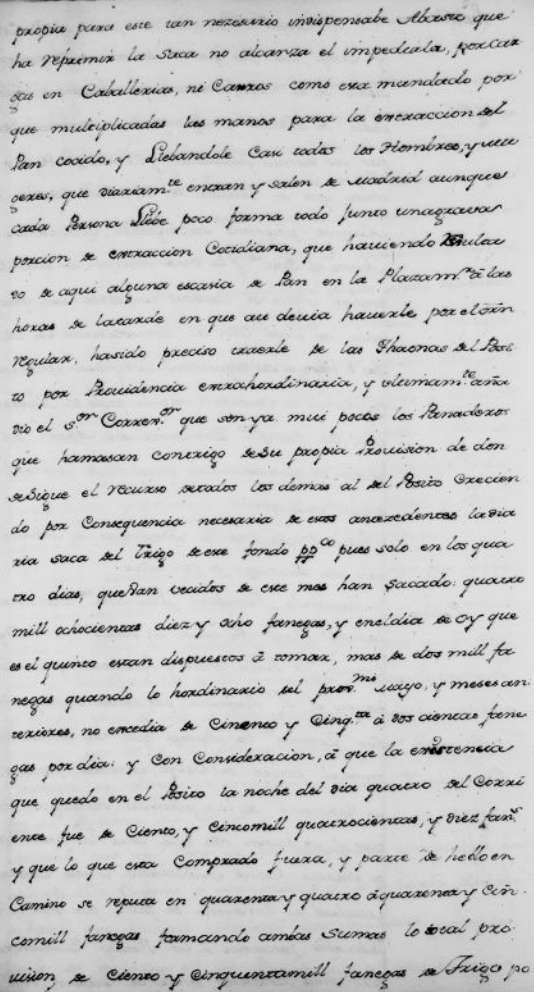 propia para este tan nezesario indispensabe Abasto que
ha reprimir la saca no alcanza el impedirla, por car
gas en Caballerias, ni Carros como esta mandado por
que multiplicadas las manos para la extraccion del
Pan cocido, y Llebandole Casi todos los Hombres, y mu
geres, que diariamte entran y salen de Madrid aunque
cada Persona Llebe poco forma todo Junto una grave
porcion de extraccion Cotidiana, que haviendo resulta
do de aqui alguna escasia de Pan en la Plaza mr. á las
horas de la tarde en que devia haverle por el orn
regular, ha sido preciso traerle de las Thaonas del Posi
to por Providencia extrahordinaria, y ultimamte aña
dio el Sor Correxor que son ya mui pocos los Panaderos
que hamasan con trigo de su propia Provision de don
de sigue el recurso de todos los demas al del Posito Crecien
do por Consequencia necesaria de estos antezedentes la dia
ria saca del trigo de este fondo ppco pues solo en los qua
tro dias, que van vecidos de este mes han sacado: quatro
mill ochocientas diez y ocho fanegas, y en el dia de oy que
es el quinto estan dispuestos á tomar, mas de dos mill fa
negas quando lo hordinario del proxmo Mayo, y meses an
teriores, no excedia de Ciento y Cinqta á dos cientas fane
gas por dia: y Con Consideracion, á que la existencia
que quedo en el Posito la noche del dia quatro del Corri
ente fue de Ciento, y Cinco mill quatrocientas, y diez fans
y que lo que esta Comprado fuera, y parte de hello en
Camino se reputa en quarenta y quatro á quarenta y Cin
co mill fanegas formando ambas sumas lo total pro
vision de Ciento y Cinquenta mill fanegas de Trigo po